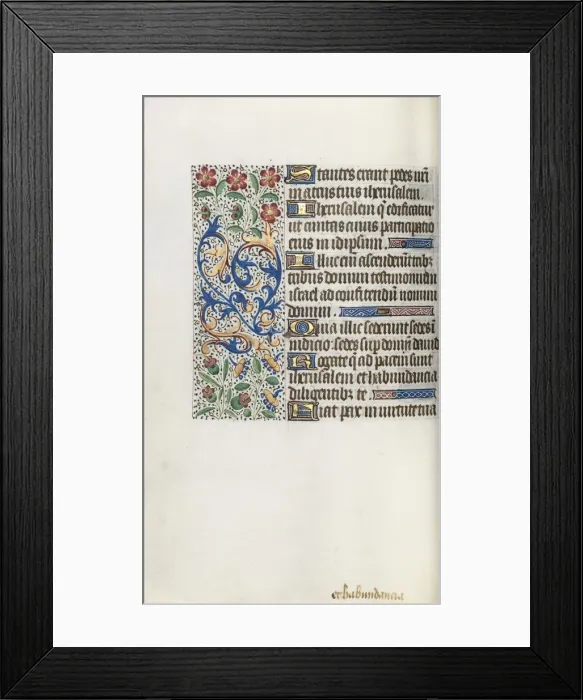 Stantes erant pedes nr̄i
in atriis tuis iherusalem.
Iherusalem q̄ edificatur
ut ciuitas cuius participatio
eius in idipsum.
Illuc em̄ ascenderūt trib⁹
tribus domini testimonium
israel ad confitendū nomini
domini.
Quia illic sederunt sedes ī
iudicio: sedes sup domū dauid
Rogate q̄ ad pacem sunt
iherusalem et habundancia
diligentibz te.
Fiat pax in uirtute tua
et habundancia